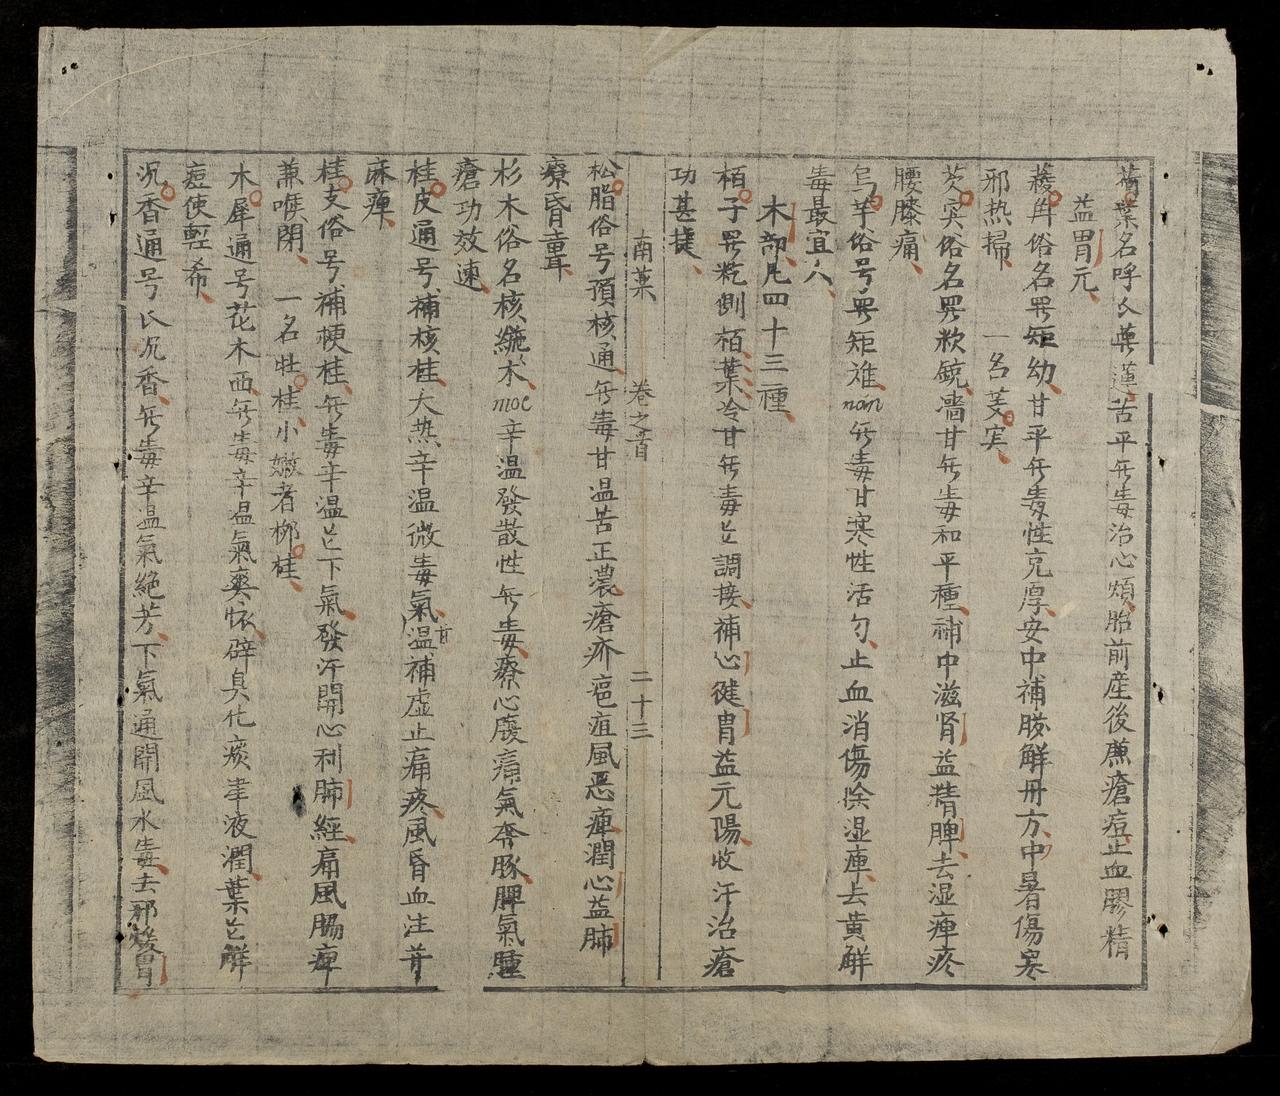 荷葉名呼氏葉蓮苦平無毒治心煩胎前產後蔗瘡痘止血膠精
益胃元
菱角俗名號矩幼甘平無毒性克厚安中補臟解丹方中暑傷寒
邪热掃 一名芰实
芡实俗名號欺銃嗇甘無毒和平種補中滋肾益精脾去湿痺疼
腰膝痛
烏芋俗号號矩难nan無毒甘寒性活勻止血消傷除湿庫去黄解
毒最宜人
木部凡四十三種
栢子號籺側栢葉冷甘無毒芒調接補心健胃益元陽收汗治瘡
功甚捷
南薬 卷之首 二十三
松脂俗号預核通無毒甘温苦正濃瘡疥疤疽風惡痺潤心益肺
療昏聾
杉木俗名核纏木moc辛温發散性無毒療心廢痛氣奔豚脾氣腫
瘡功效速
桂皮通号補核桂大热辛温微毒氣甘温補虚止痛疼風昏血注并
麻痺
桂支俗号補梗桂無毒辛温芒下氣發汗開心利肺經痛風腸痺
兼喉閉 一名牡桂小嫩者桞桂
木犀通号花木西無毒辛温氣爽㤇辟臭化痰津液潤葉芒解
痘使輕希
沉香通号氏沉香無毒辛温氣絶芳下氣通開風水毒去邪煖胃